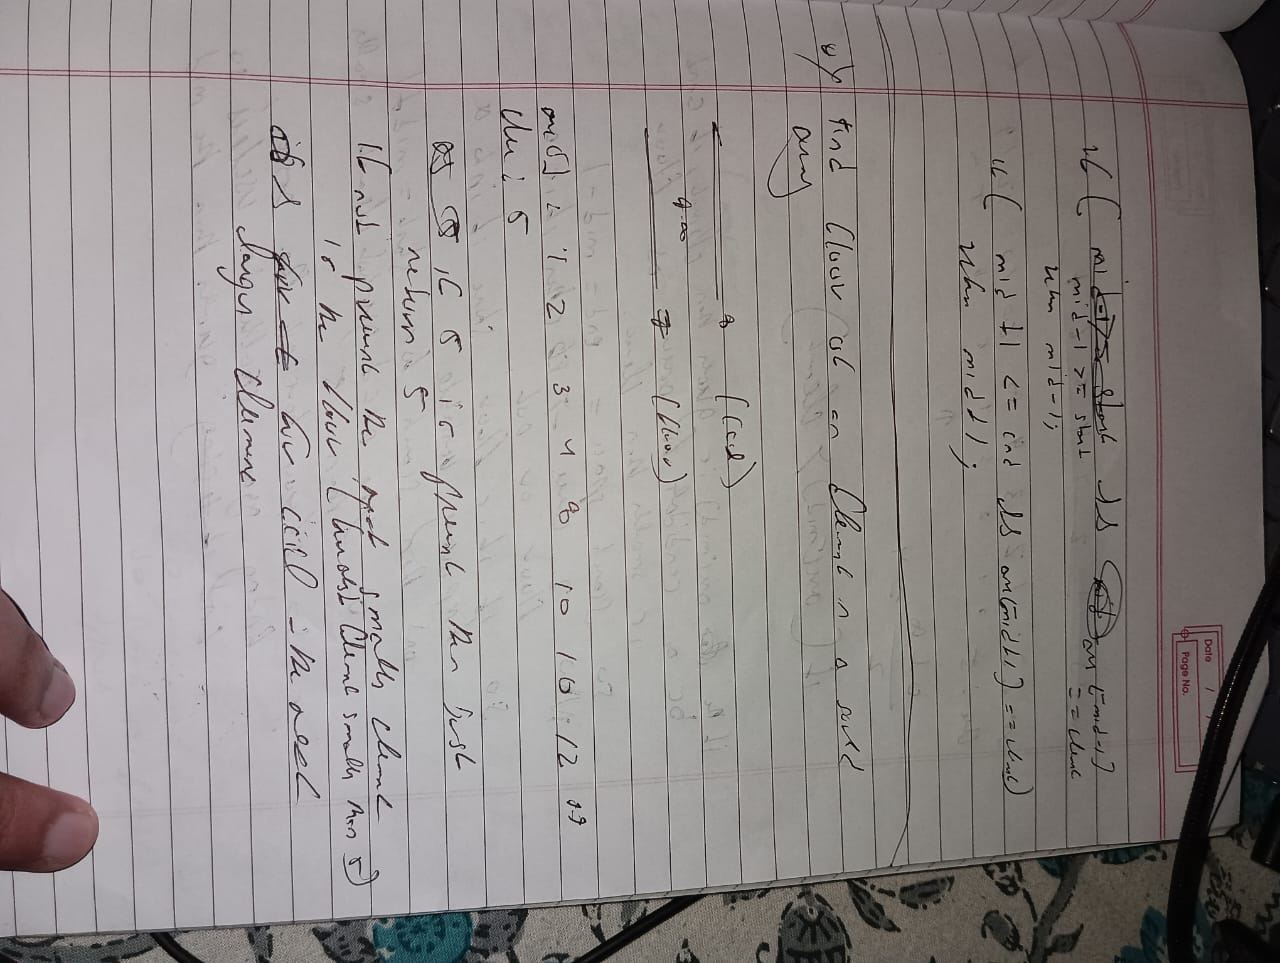 Date / /
Page No.
if ( mid-1 >= start && arr[mid-1] == element
return mid-1;
if ( mid+1 <= end && arr[mid+1] == element)
return mid+1;
Find floor of an Element in a sorted
array
8 (ceil)
7.8
7 (floor)
arr[] = 1 2 3 4 8 10 10 12 19
ele : 5
if 5 is present then just
return 5
If not present the smaller element
is the floor (greatest element smaller than 5)
for ceil - the next
larger element